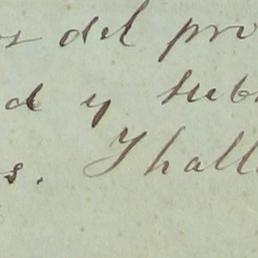 os del pro
d y subs
s. Y hall